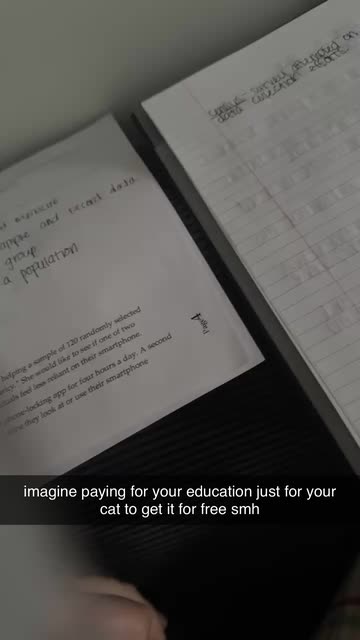 and record data
group
a population
helping a sample of 120 randomly selected
." She would like to see if one of two
feel less reliant on their smartphone.
-locking app for four hours a day. A second
they look at or use their smartphone
Page 4
data collection
imagine paying for your education just for your
cat to get it for free smh